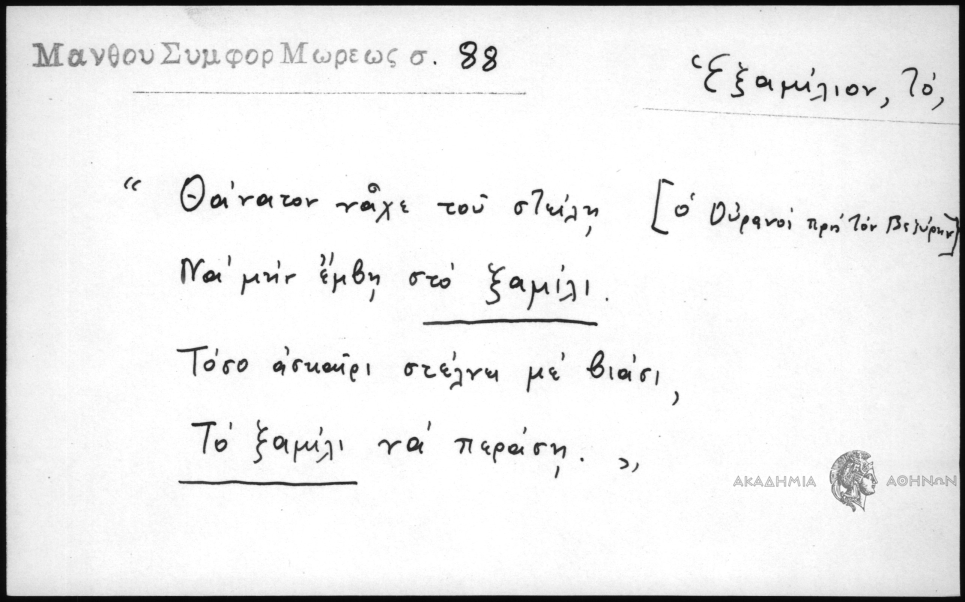 Μανθου Συμφορ Μωρεως σ. 88
Ἑξαμίλιον, Τό,
“ Θάνατον νἆχε τοῦ στείλη [ὁ Οὐρανὸς πρὸς τὸν Βεζύρην]
Νὰ μὴν ἔμβῃ στὸ ξαμίλι.
Τόσο ἀσκαῖρι στέλνει μὲ βιάσι,
Τὸ ξαμίλι νὰ περάσῃ. „
ΑΚΑΔΗΜΙΑ ΑΘΗΝΩΝ